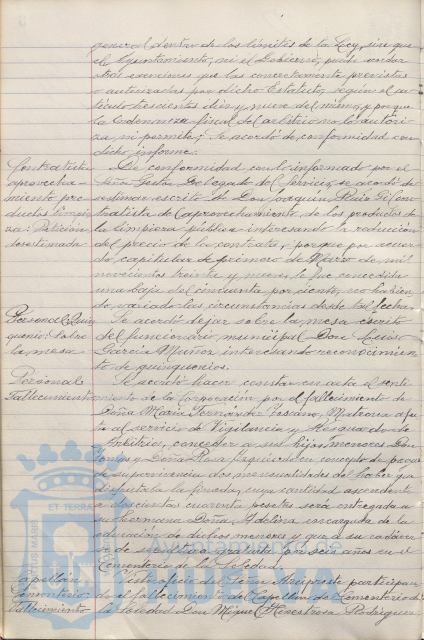 general dentro de los límites de la Ley, sin que
el Ayuntamiento, ni el Gobierno, pueda acordar
otras exenciones que las concretamente previstas
o autorizadas por dicho Estatuto, según el ar-
tículo trescientos diez y nueve del mismo, y porque
la Ordenanza fiscal del arbitrio no lo autori-
za ni permite; Se acordó de conformidad con
dicho informe.
Contratista
aprovecha-
miento pro-
ductos limpie-
za: Petición
desestimada
De conformidad con lo informado por el
Señor Gestor Delegado del Servicio, se acordó de-
sestimar escrito de Don Joaquín Ruiz Gil con-
tratista del aprovechamiento de los productos de
la limpieza pública interesando la reducción
del precio de la contrata, porque por acuer-
do capitular de primero de Marzo de mil
novecientos treinta y nueve, le fue concedida
una baja del cincuenta por ciento, no habien-
do variado las circunstancias desde tal fecha.
Personal: Quin-
quenio: Sobre
la mesa
Se acordó dejar sobre la mesa escrito
del funcionario municipal Don Luis
García Muñoz, interesando reconocimien-
to de quinquenios.
Personal
Fallecimiento
Se acordó hacer constar en acta el senti-
miento de la Corporación por el fallecimiento de
Doña María Fernández Lozano, Matrona afec-
ta al servicio de Vigilancia y Resguardo de
Arbitrios, conceder a sus hijos menores Don
y Doña Rosa Izquierdo en concepto de paga
de supervivencia dos mensualidades del haber que
disfrutaba la finada, cuya cantidad ascendente
a pesetas será entregada a
su hermana Doña Adelina encargada de la
educación de dichos menores y que a su cadáver
se dé sepultura gratuita por seis años en el
Cementerio de la Soledad.
Capellán
Cementerio:
Fallecimiento
Visto oficio del Señor Arcipreste participan-
do el fallecimiento del Capellán del Cementerio de
la Soledad Don Miguel Henestrosa Rodríguez
ET TERRA
Ayuntamiento de